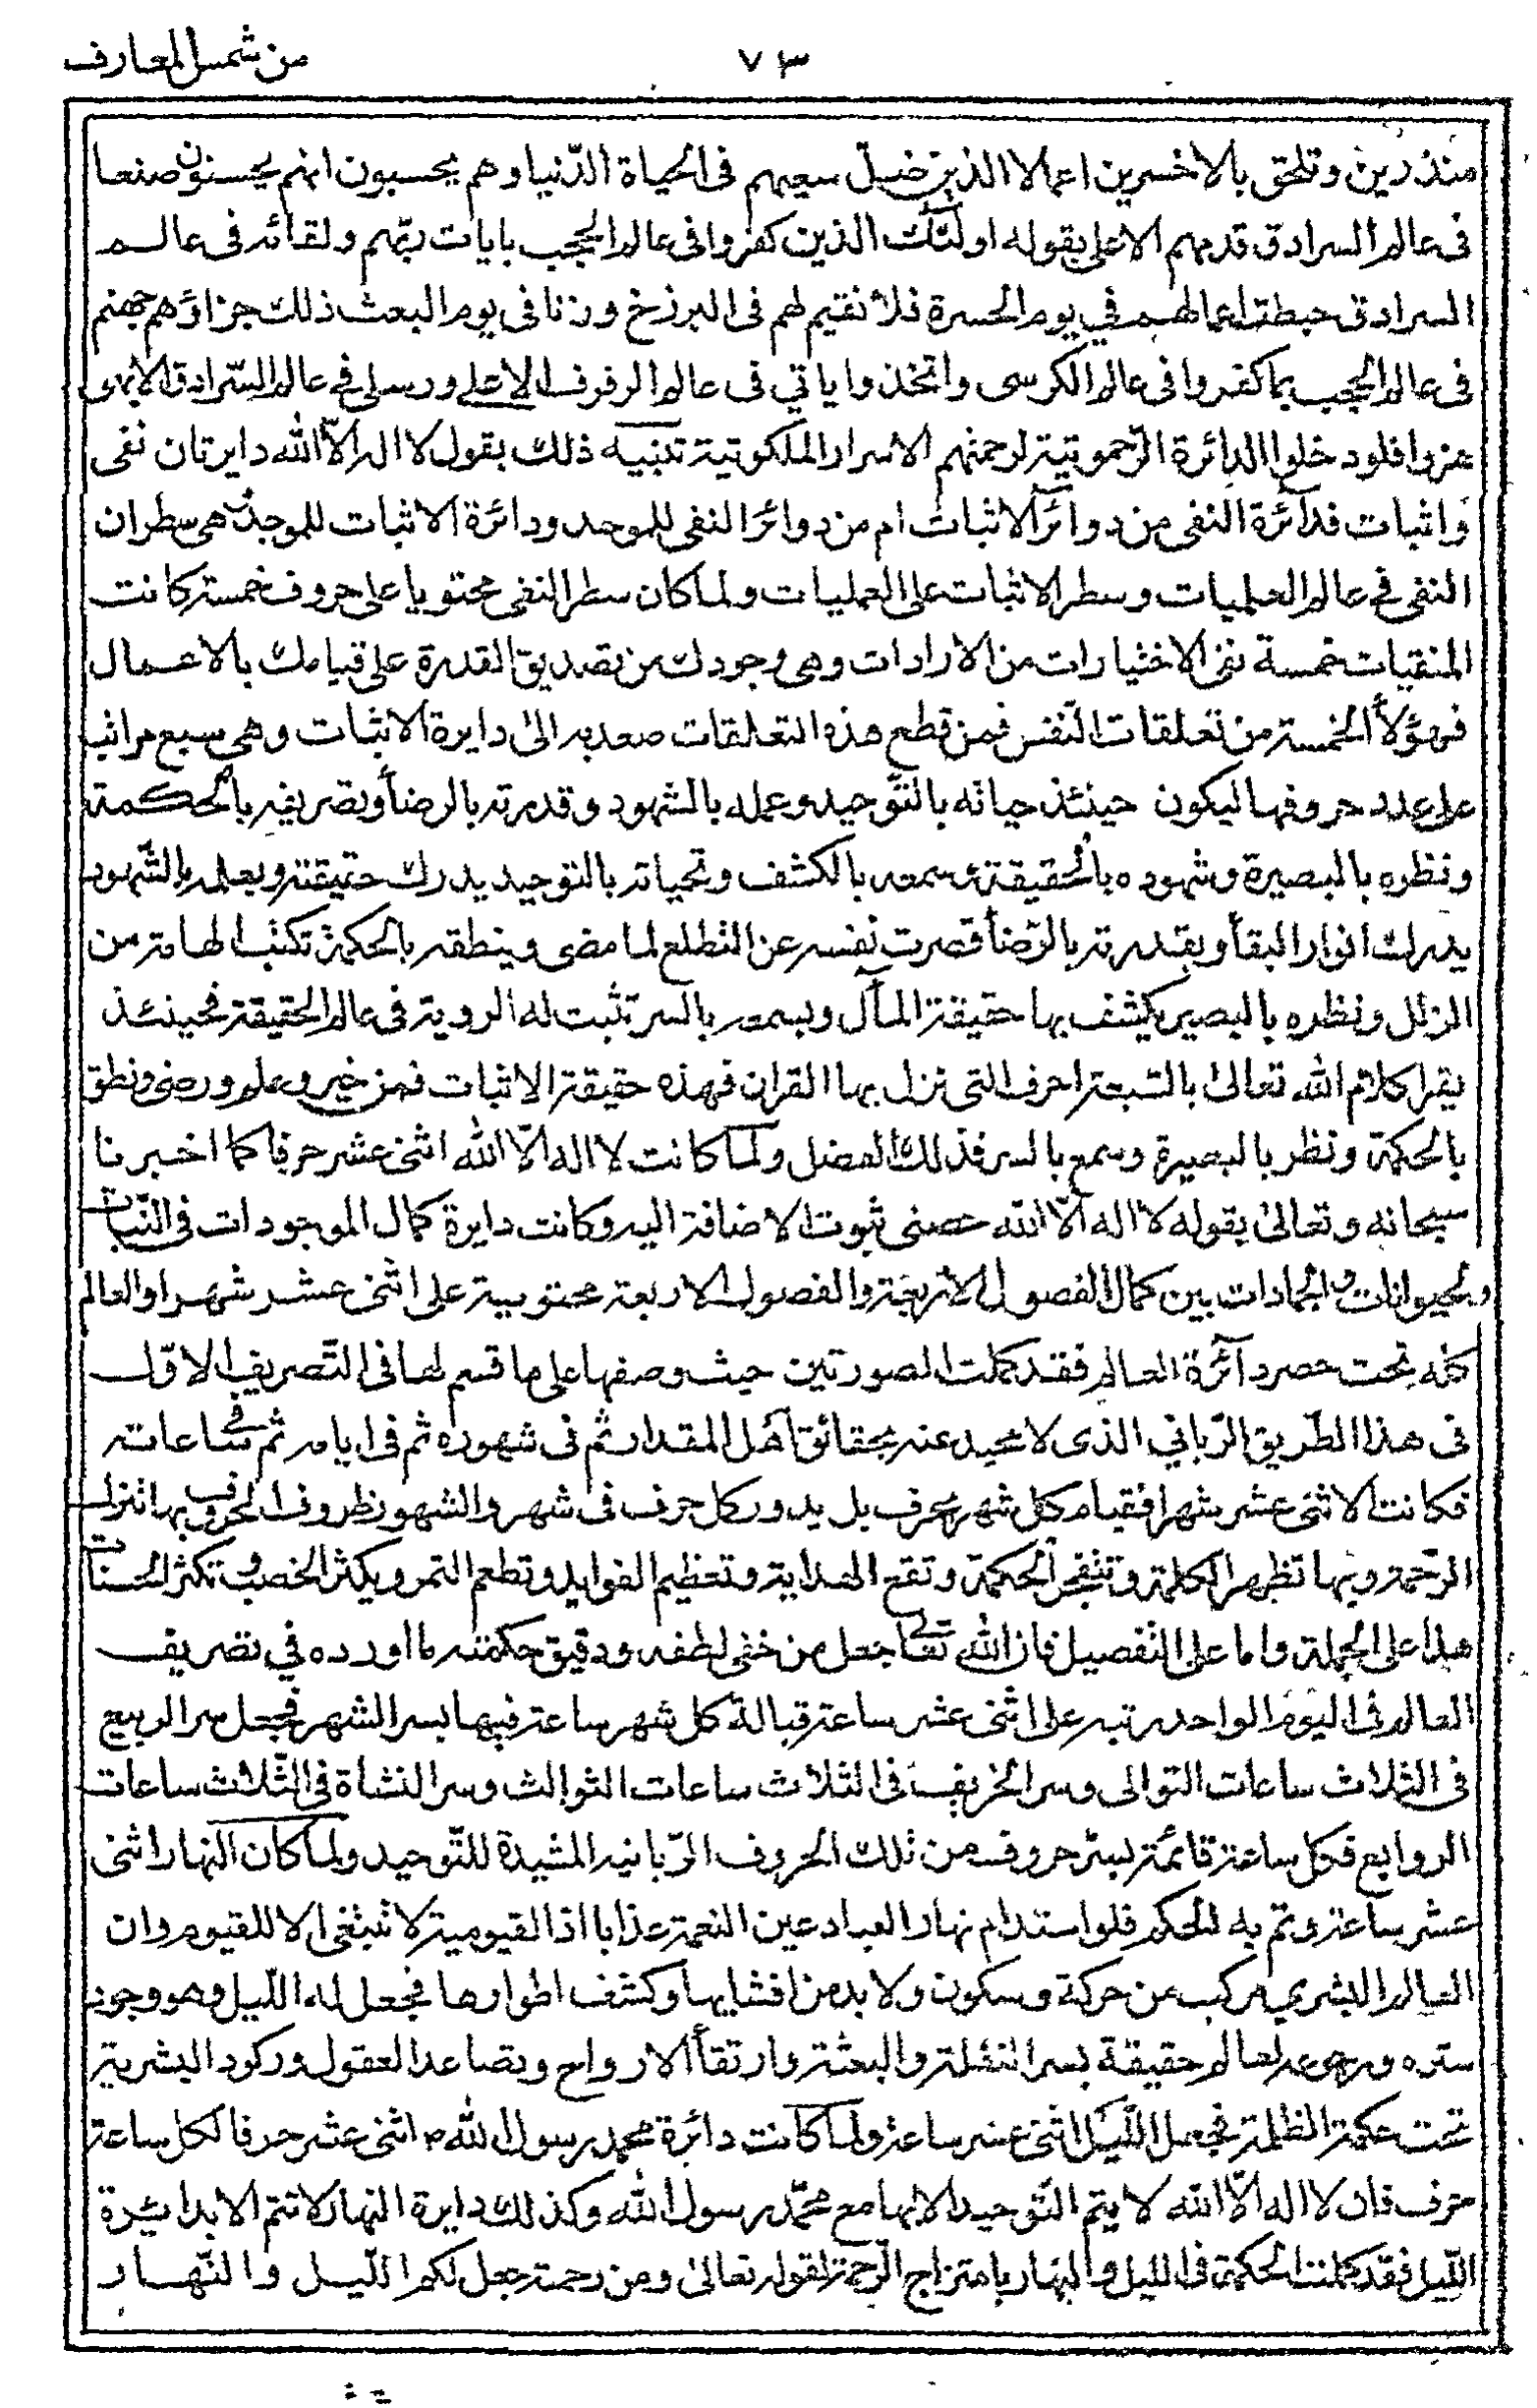 من شمس المعارف
٧٣
منذرين وتلحق بالاخسرين اعمالا الذين ضل سعيهم فى الحياة الدّنيا وهم يحسبون انهم يحسنون صنعا
فى عالم السرادق قدمهم الاعلى بقوله اولئك الذين كفروا فى عالم الحجب بايات ربّهم ولقائه فى عالم
السرادق حبطت اعمالهم في يوم الحسرة فلا نقيم لهم فى البرزخ وزنا فى يوم البعث ذلك جزاؤهم جهنم
فى عالم الحجب بما كفروا فى عالم الكرسى واتخذوا ياتي فى عالم الرفرف الاعلى ورسلى في عالم السّرادق الابهى
عزوا فلو دخلوا الدائرة الرّحموتية لرحمنهم الاسرار الملكوتية تنبيه ذلك بقول لا اله الاّ الله دايرتان نفى
واثبات فدآئرة النفى من دوائر الاثبات ام من دوائر النفى للموحد ودائرة الاثبات للموجد هى سطران
النفى في عالم العلميات وسطر الاثبات على العمليات ولما كان سطر النفى محتويا على حروف خمسة كانت
المنفيات خمسة نفى الاختيارات من الارادات وهى وجودك من تصديق القدرة على قيامك بالاعمال
فهؤلاء الخمسة من تعلقات النّفس فمن قطع هذه التعلقات صعد به الى دايرة الاثبات وهى سبع مراتب
على عدد حروفها ليكون حينئذ حياته بالتّوحيد وعمله بالشهود وقدرته بالرضأ وتصريفه بالحكمة
ونظره بالبصيرة وشهوده بالحقيقة وسمعه بالكشف وتحياته بالتوحيد يدرك حقيقته وبعلمه بالشّهود
يدرك انوار البقأ وبقدرته بالرّضأ قصرت نفسه عن التطلع لما مضى وينطقه بالحكمة تكتب الهامة من
الزلل ونظره بالبصير يكشف بها حقيقة المآل وبسمعه بالسر تثبت له الروية فى عالم الحقيقة فحينئذ
يقرا كلام الله تعالى بالسّبعة احرف التى نزل بها القران فهذه حقيقة الاثبات فمن خير وعلم ورضى ونطق
بالحكمة ونظر بالبصيرة وسمع بالسر فذلك الفضل ولما كانت لا اله الاّ الله اثنى عشر حرفا كما اخبرنا
سبحانه وتعالى بقوله لا اله الاّ الله حصنى ثبوت الاضافة اليه وكانت دايرة كمال الموجودات فى النّبات
والحيوانات والجمادات بين كمال الفصول الاربعة والفصول الاربعة محتوية على اثنى عشر شهرا والعالم
كله تحت حصر دآئرة العالم فقد كملت الصورتين حيث وصفها على ما قسم لها فى التّصريف الاوّل
فى هذا الطّريق الرّباني الذى لا محيد عنه بحقائق اهل المقدار ثم فى شهوره ثم فى ايامه ثم فى ساعاته
فكانت الاثنى عشر شهرا فقيام كل شهر بحرف بل يدور كل حرف فى شهر والشهور ظروف الحروف بها تنزل
الرّحمة وبها تظهر الكلمة وتنفجر الحكمة وتقع الهداية وتعظيم الفوايد وتطعم الثمر ويكثر الخصب وتكثر الحسنات
هذا على الجملة واما على التفصيل فان الله تعا جعل من خفى لطفه ودقيق حكمته ما اورده في تصريف
العالم فى اليوم الواحد رتبه على اثنى عشر ساعة قبالة كل شهر ساعة فيها بسر الشهر فجعل سر الربيع
فى الثلاث ساعات التوالى وسر الخريف فى الثلاث ساعات الثوالث وسر النشاة فى الثّلاث ساعات
الروابع فكل ساعة قائمة بسرّ حروف من تلك الحروف الرّبانيه المشيدة للتّوحيد ولما كان النهار اثنى
عشر ساعة وتم به الحكم فلو استدام نهار العباد عين النعمة عذابا اذ القيومية لا تنبغى الا للقيوم وان
العالم البشري مركب من حركة وسكون ولا بد من افشايها وكشف اطوارها فجعل له اللّيل وهو وجود
ستره لعالم حقيقة بسر النقلة والبعثة وارتقأ الارواح وتصاعد العقول وركود البشرية
تحت حكمة الظلمة فجعل اللّيل اثنى عشر ساعة ولما كانت دائرة محمد رسول الله ص اثنى عشر حرفا لكل ساعة
حرف فان لا اله الاّ الله لا يتم التّوحيد الا بها مع محمّد رسول الله وكذلك دايرة النهار لا تتم الا بدائيرة
اللّيل فقد كملت الحكمة فى الليل والنهار بامتزاج الرّحمة لقوله تعالى ومن رحمته جعل لكم اللّيل والنّهار